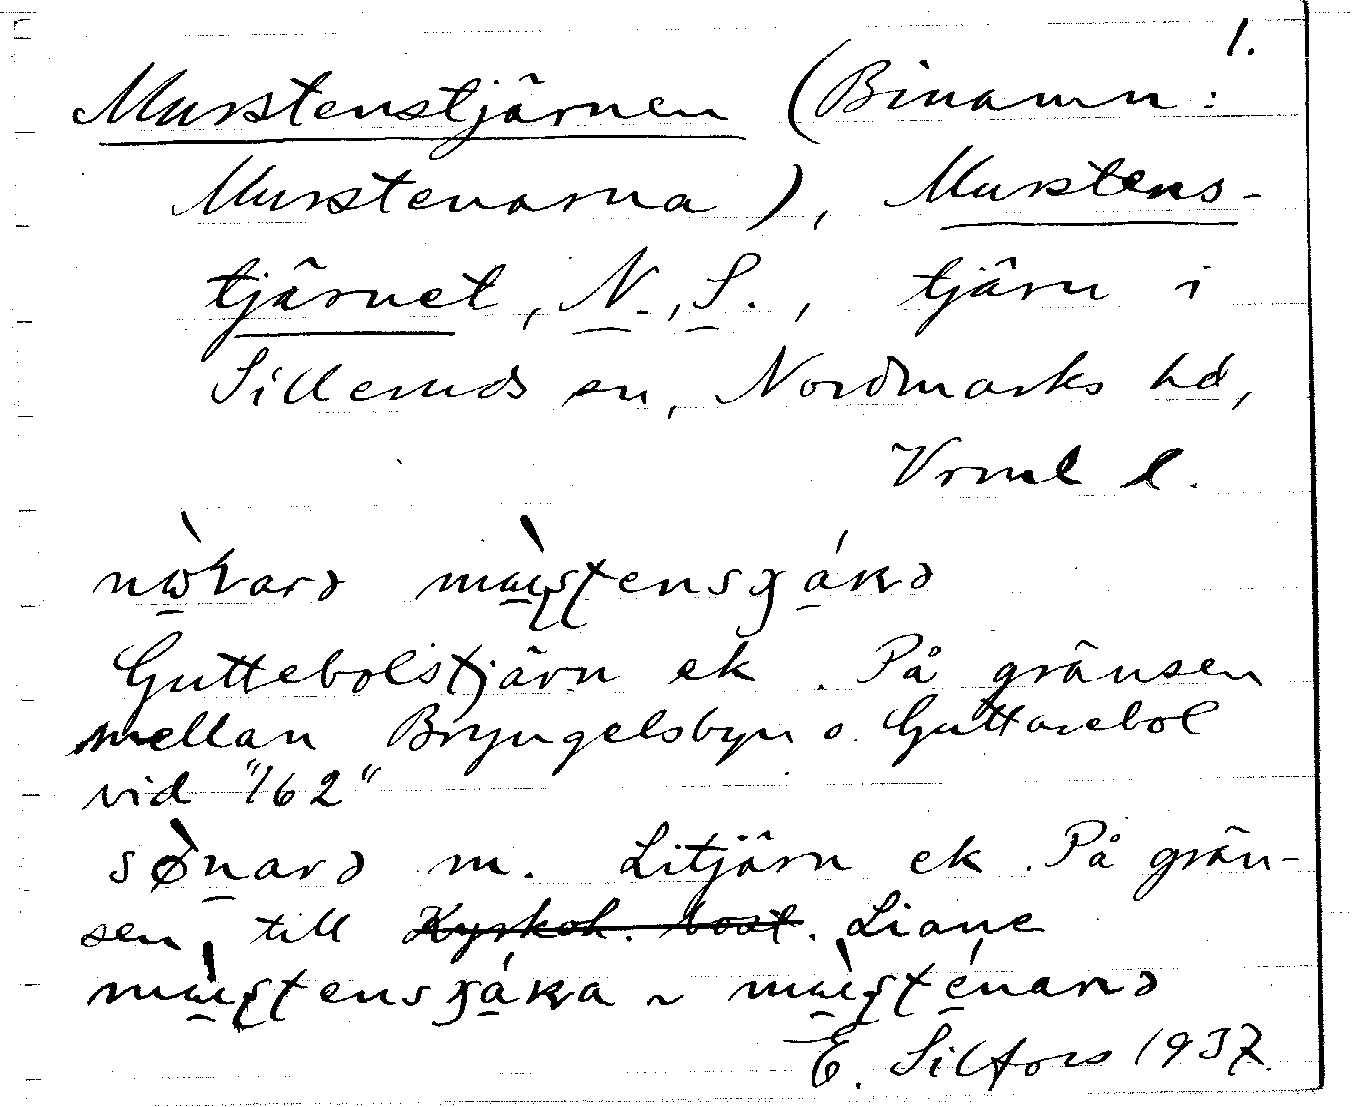 1.
Murstenstjärnen (Binamn:
Murstenarna), Murstens-
tjärnet, N., S., tjärn i
Silleruds sn, Nordmarks hd,
Vrml l.
Guttebolstjärn ek. På gränsen
mellan Bryngelsbyn o. Guttarebol
vid "162"
m. Litjärn ek. På grän-
sen till Kyrkoh. bost. Liane
E. Silfors 1937.